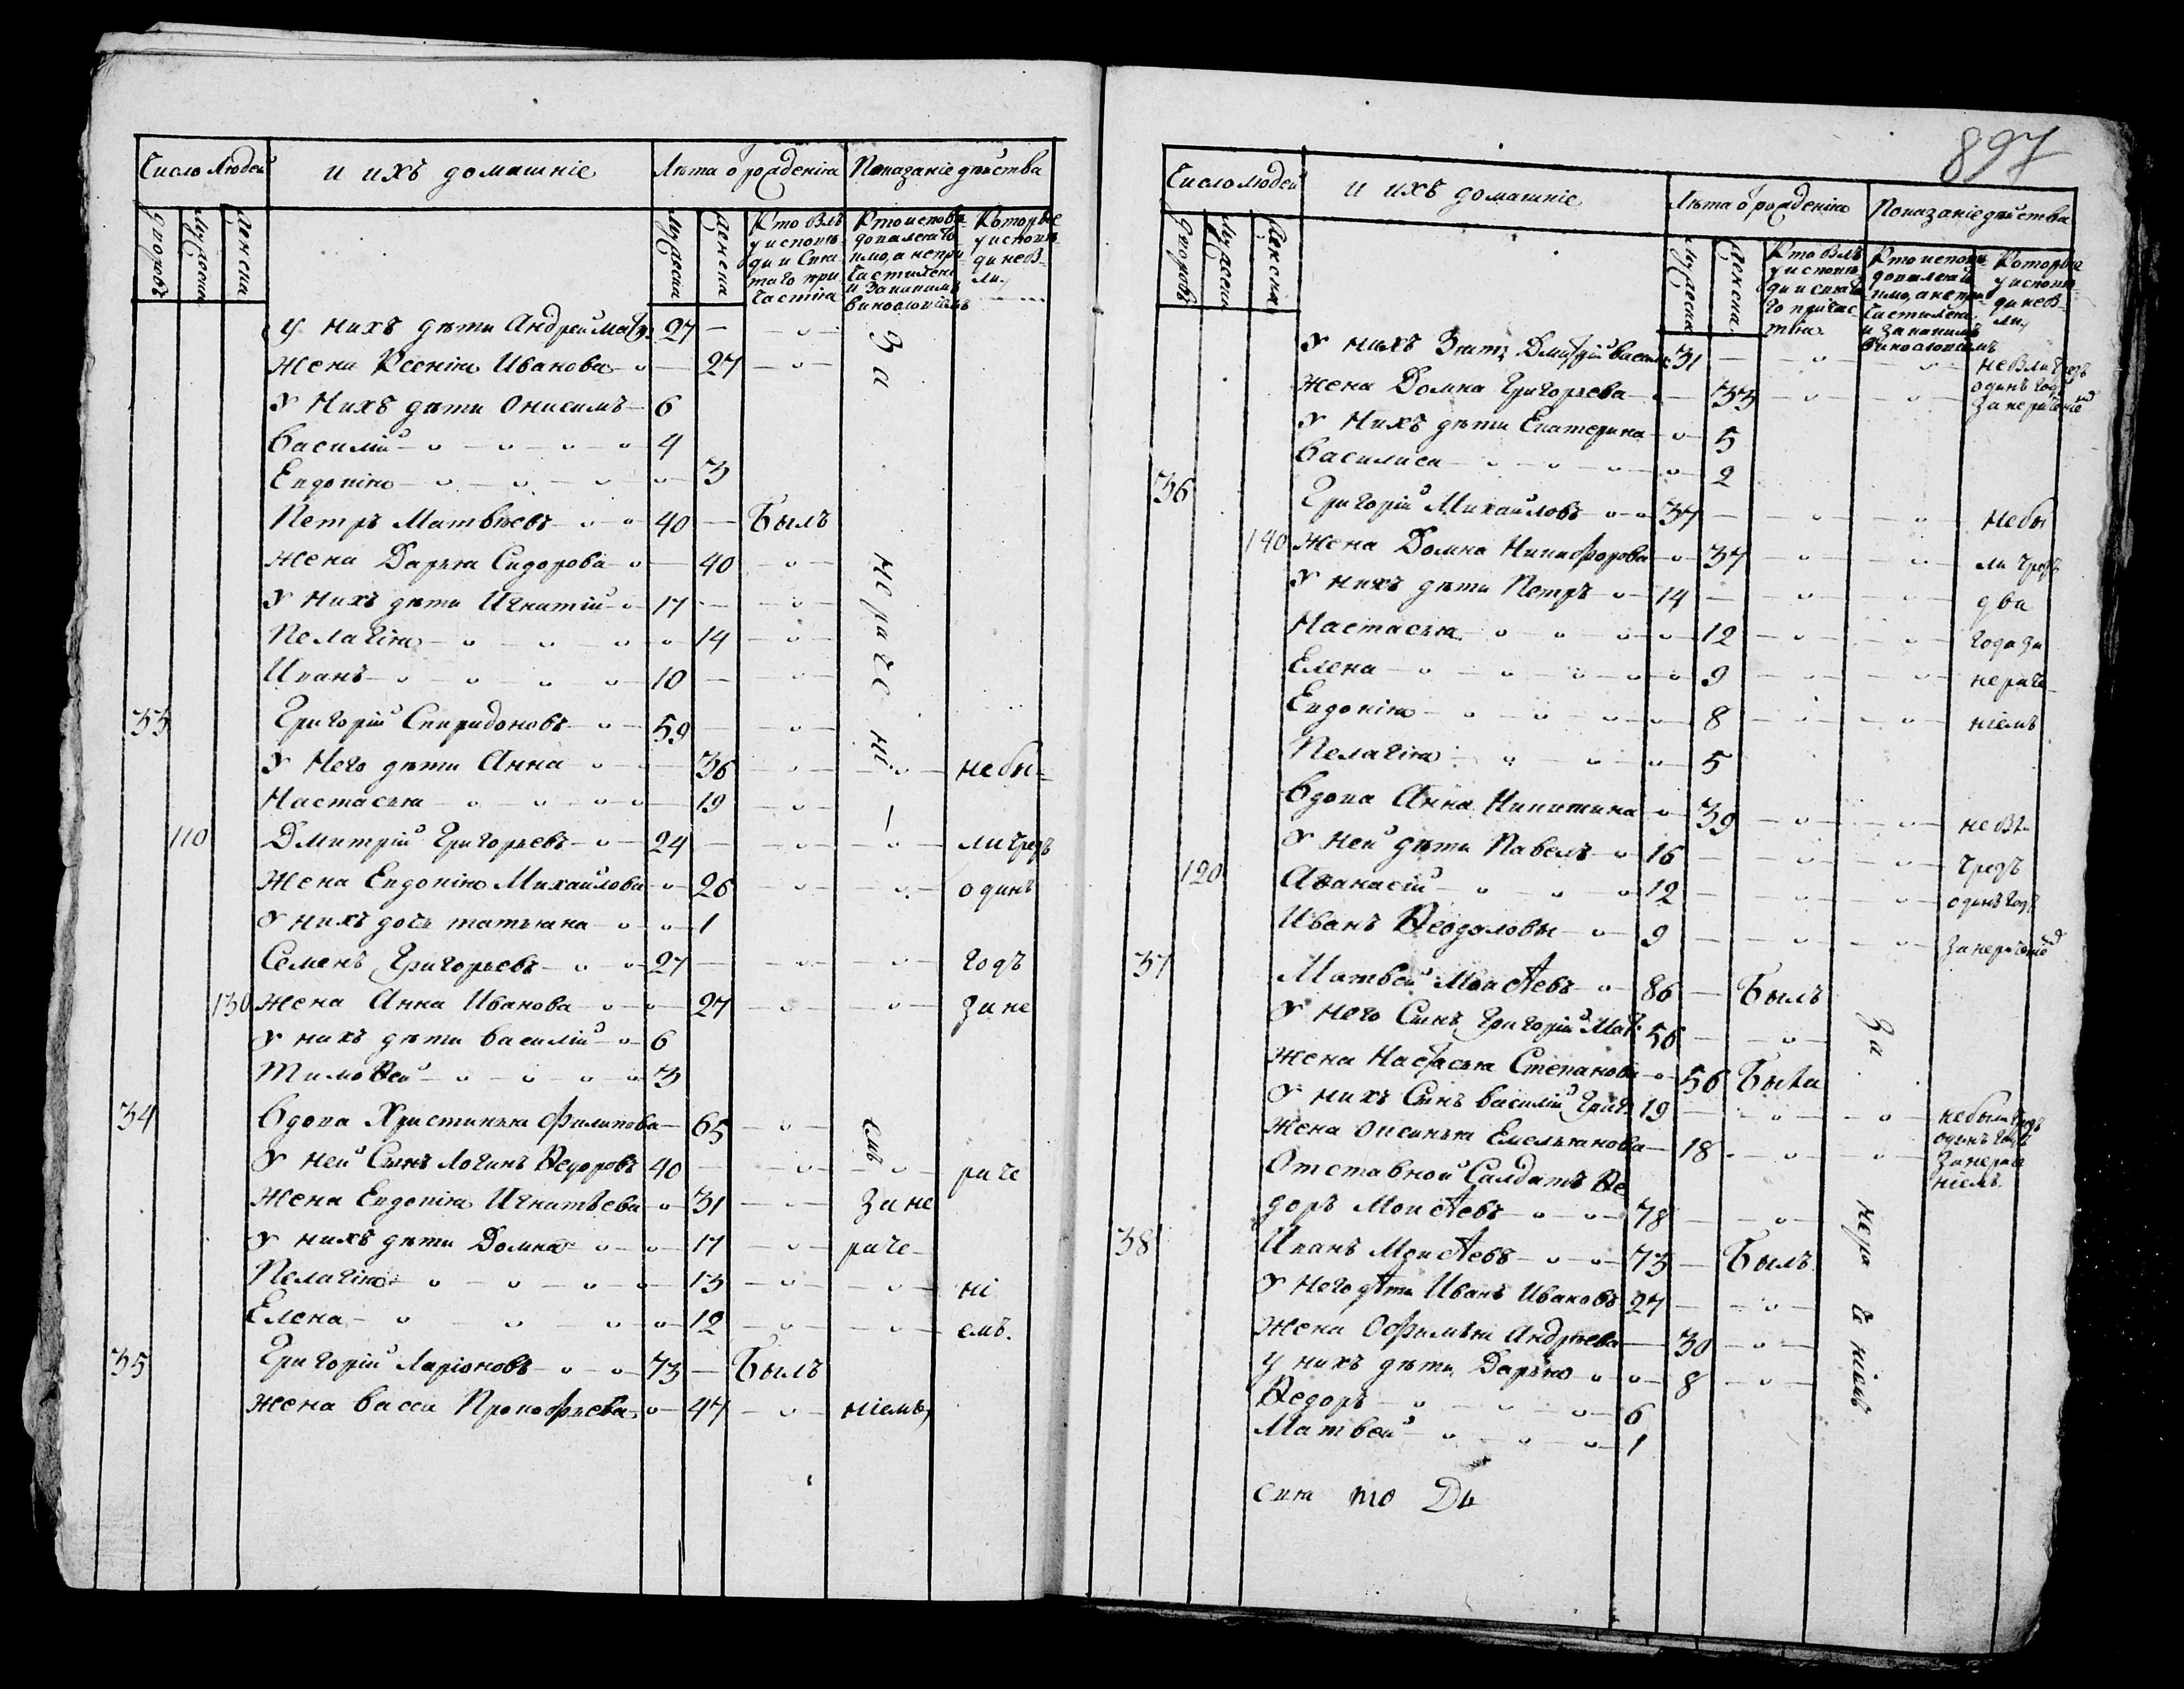 Число людей и ихъ домашнїе Лѣта ѿ рожденїя Показанїе дѣйства
Дворовъ Мужеска Женска Мужеска Женска
Кто былъ у исповѣди и святаго причастїя
Кто исповѣдовался токмо, а не причастился и за какимъ винословїемъ
Которые у исповѣди не были
У нихъ дѣти Андрей 27
Жена Ксенїя Иванова 27
У нихъ дѣти Онисимъ 6
Василїй 4
Евдокїя 3
Петръ Матвѣевъ 40 Былъ
Жена Дарья Сидорова 40
У нихъ дѣти Игнатїй 17
Пелагїя 14
Иванъ 10
33 Григорїй Спиридоновъ 59
У него дѣти Анна 36 небы-
Настасья 19
110 Дмитрїй Григорьевъ 24 ли чрезъ
Жена Евдокїя Михайлова 26 одинъ
У нихъ дочь татьяна 1
Семенъ Григорьевъ 27 годъ
130 Жена Анна Иванова 27 зане
У нихъ дѣти василїй 6
Тимоѳей 3
34 Вдова Христинья Филипова 65
У ней Сынъ Логинъ Ѳедоровъ 40 раче
Жена Евдокїя Игнатьева 31 зане
У нихъ дѣти Домна 17 раче-
Пелагїя 13 нї
Елена 12 емъ.
35 Григорїй Ларїоновъ 73 Былъ
Жена васса Прокофьева 47 нїемъ
За нераченї емъ
897
Число людей и ихъ домашнїе Лѣта ѿ рожденїя Показанїе дѣйства
Дворовъ Мужеска Женска Мужеска Женска
Кто былъ у исповѣди и святаго причастїя
Кто исповѣдовался токмо, а не причастился и за какимъ винословїемъ
Которые у исповѣди не были
У нихъ Зять Дмитрїй 31 небыли чрезъ
одинъ годъ
Жена Домна Григорьева 33
У нихъ дѣти Екатерина 5
Василиса 2
36 Григорїй Михайловъ 37 небы
140 Жена Домна Никифорова 37 ли чрезъ
У нихъ дѣти Петръ 14 два
Настасья 12 года за
Елена 9 нераче
Евдокїя 8 нїемъ
Пелагїя 5
Вдова Анна Никитина 39
У ней дѣти Павелъ 16 чрезъ
120 Аѳанасїй 12 одинъ годъ
Иванъ Ѳеодоловы 9
37 Матвей Моисѣевъ 86 Былъ
У него Сынъ Григорїй 56
Жена Настасья Степанова 56 Была
У нихъ Сынъ василїй 19 небыли чрезъ
одинъ годъ
Жена Оксинья Емельянова 18 занераче
нїемъ.
Отставной Салдатъ Ѳе
доръ Моисѣевъ 78
38 Иванъ Моисѣевъ 73 Былъ
У него дѣти Иванъ Ивановъ 27
Жена Офимья Андреева 30
У нихъ дѣти Дарья 8
Ѳедоръ 6
Матвей 1
За нера ченїемъ